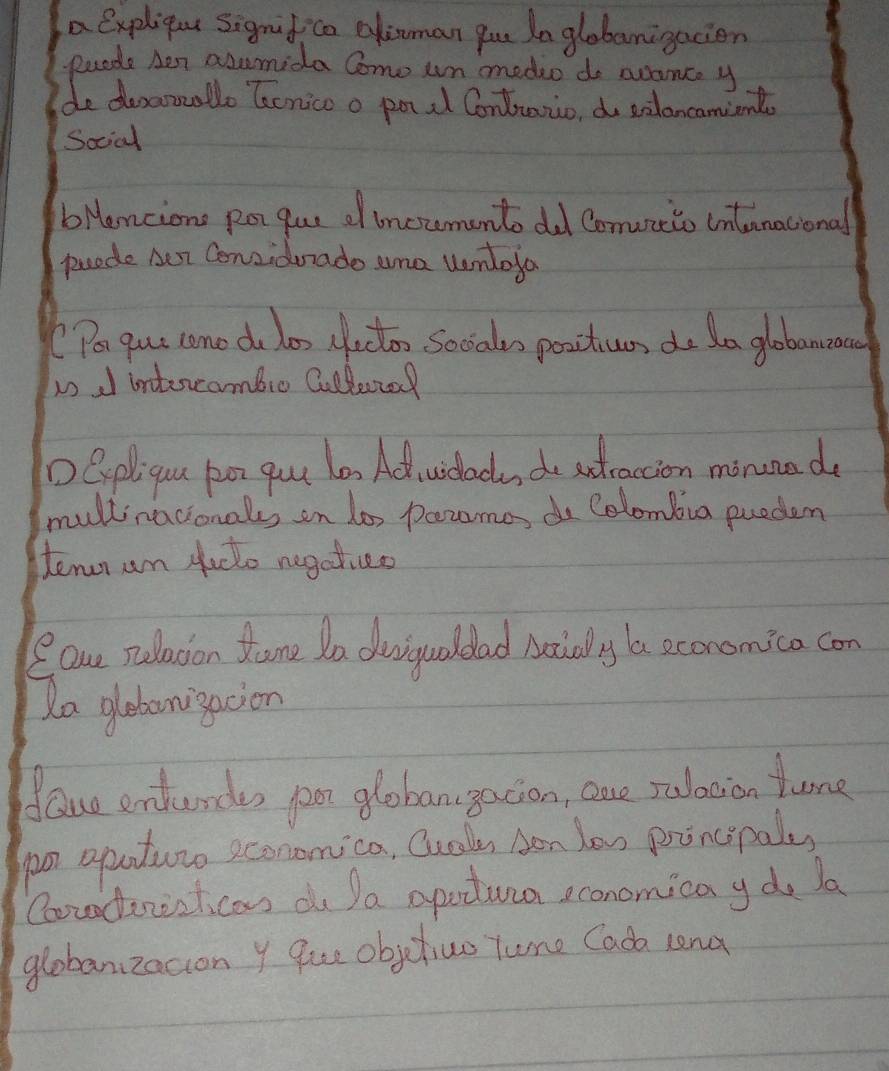 a Explique Significa afirman que la globanización
puede ser asumida Como un medio de avance y
de desarrollo Tecnico o por el Contrario, de estancamiento
Social
b Mencione por que el incremento del Comercio internacional
puede ser Considerado una ventaja
C Por que uno de los efectos Sociales positivos de la globanizacion
es el intercambio Cultural
D Explique por que las Actividades de extraccion minera de
multinacionales en los paramos de Colombia pueden
tener un efecto negativo
E Que relacion tiene la desigualdad social y la economica con
la globanizacion
f Que entiendes por globanizacion, Que relacion tiene
por apertura economica, Cuales son las principales
Caracteristicas de la apertura economica y de la
globanizacion y que objetivo tiene Cada una